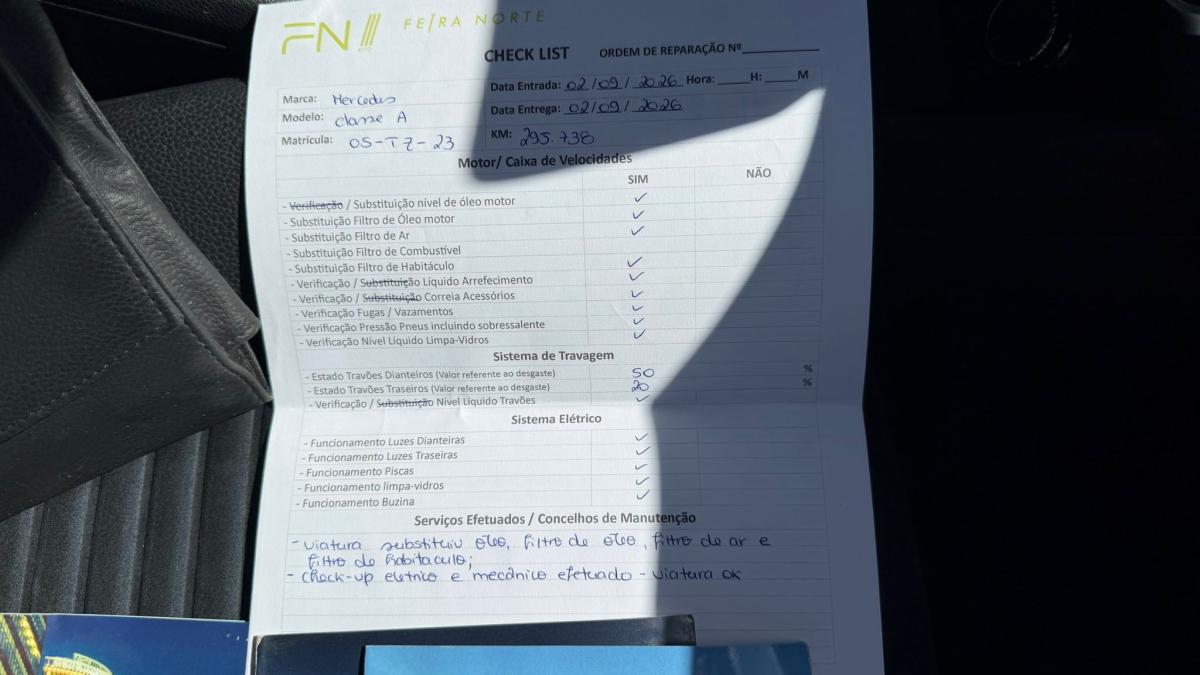 FN FEIRA NORTE
CHECK LIST ORDEM DE REPARAÇÃO Nº
Data Entrada: 02/09/2026 Hora: H: M
Marca: Mercedes
Data Entrega: 02/09/2026
Modelo: classe A
KM: 295.738
Matrícula: OS-TZ-23
Motor/ Caixa de Velocidades
SIM NÃO
- Verificação / Substituição nível de óleo motor ✓
- Substituição Filtro de Óleo motor ✓
- Substituição Filtro de Ar ✓
- Substituição Filtro de Combustível
- Substituição Filtro de Habitáculo ✓
- Verificação / Substituição Líquido Arrefecimento ✓
- Verificação / Substituição Correia Acessórios ✓
- Verificação Fugas / Vazamentos ✓
- Verificação Pressão Pneus incluindo sobressalente ✓
- Verificação Nível Líquido Limpa-Vidros ✓
Sistema de Travagem
- Estado Travões Dianteiros (Valor referente ao desgaste) 50 %
- Estado Travões Traseiros (Valor referente ao desgaste) 20 %
- Verificação / Substituição Nível Líquido Travões ✓
Sistema Elétrico
- Funcionamento Luzes Dianteiras ✓
- Funcionamento Luzes Traseiras ✓
- Funcionamento Piscas ✓
- Funcionamento limpa-vidros ✓
- Funcionamento Buzina ✓
Serviços Efetuados / Concelhos de Manutenção
- viatura substituiu óleo, filtro de óleo, filtro de ar e
filtro de habitaculo;
- check-up eletrico e mecânico efetuado - viatura ok